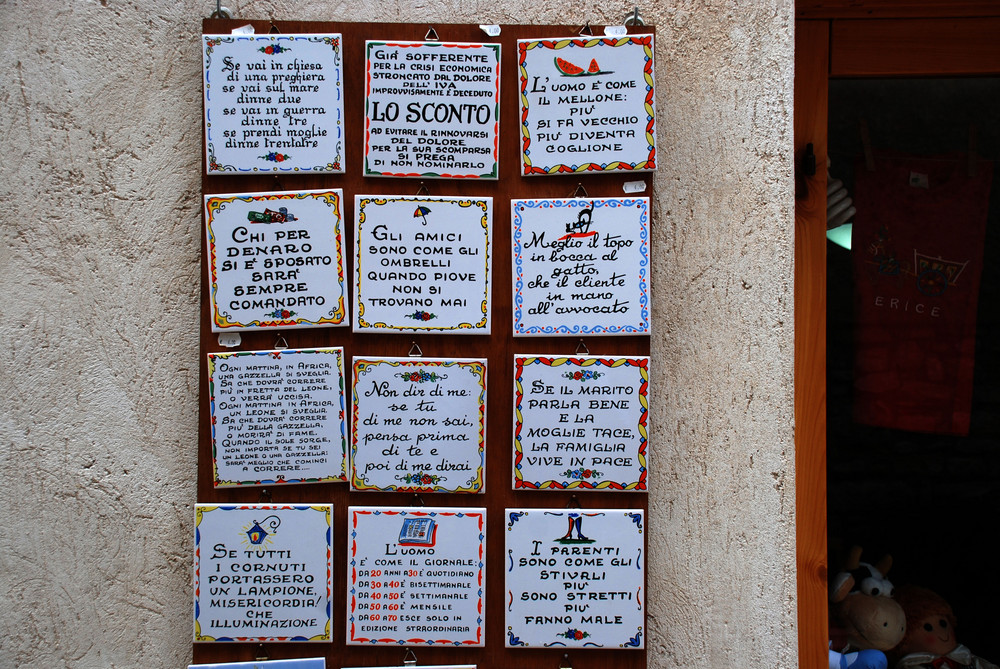 Se vai in chiesa
di una preghiera
se vai sul mare
dinne due
se vai in guerra
dinne tre
se prendi moglie
dinne trentatre
GIA' SOFFERENTE
PER LA CRISI ECONOMICA
STRONCATO DAL DOLORE
DELL' IVA
IMPROVVISAMENTE È DECEDUTO
LO SCONTO
AD EVITARE IL RINNOVARSI
DEL DOLORE
PER LA SUA SCOMPARSA
SI PREGA
DI NON NOMINARLO
L'UOMO E' COME
IL MELLONE:
PIU'
SI FA VECCHIO
PIU' DIVENTA
COGLIONE
CHI PER
DENARO
SI E' SPOSATO
SARA'
SEMPRE
COMANDATO
GLI AMICI
SONO COME GLI
OMBRELLI
QUANDO PIOVE
NON SI
TROVANO MAI
Meglio il topo
in bocca al
gatto,
che il cliente
in mano
all'avvocato
OGNI MATTINA, IN AFRICA,
UNA GAZZELLA SI SVEGLIA.
SA CHE DOVRA' CORRERE
PIU' IN FRETTA DEL LEONE,
O VERRA' UCCISA.
OGNI MATTINA IN AFRICA,
UN LEONE SI SVEGLIA.
SA CHE DOVRA' CORRERE
PIU' DELLA GAZZELLA,
O MORIRA' DI FAME.
QUANDO IL SOLE SORGE,
NON IMPORTA SE TU SEI
UN LEONE O UNA GAZZELLA:
SARA' MEGLIO CHE COMINCI
A CORRERE...
Non dir di me:
se tu
di me non sai,
pensa prima
di te e
poi di me dirai
SE IL MARITO
PARLA BENE
E LA
MOGLIE TACE,
LA FAMIGLIA
VIVE IN PACE
SE TUTTI
I CORNUTI
PORTASSERO
UN LAMPIONE,
MISERICORDIA!
CHE
ILLUMINAZIONE
L'UOMO
E' COME IL GIORNALE:
DA 20 ANNI A 30 E' QUOTIDIANO
DA 30 A 40 E' BISETTIMANALE
DA 40 A 50 E' SETTIMANALE
DA 50 A 60 E' MENSILE
DA 60 A 70 ESCE SOLO IN
EDIZIONE STRAORDINARIA
I PARENTI
SONO COME GLI
STIVALI
PIU'
SONO STRETTI
PIU'
FANNO MALE
ERICE